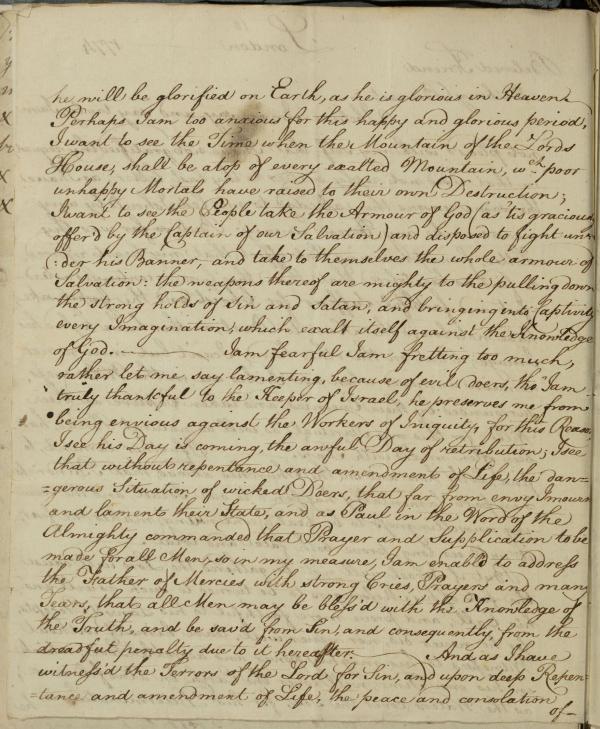 he will be glorified on Earth, as he is glorious in Heaven.
Perhaps I am too anxious for this happy and glorious period,
I want to see the Time when the Mountain of the Lords
House, shall be atop of every exalted Mountain, wch poor
unhappy Mortals have raised to their own Destruction;
I want to see the People take the Armour of God (as 'tis gracious
offer'd by the Captain of our Salvation) and disposed to fight un=
(:der his Banner, and take to themselves the whole armour of
Salvation: the weapons thereof are mighty to the pulling down
the strong holds of Sin and Satan, and bringing into Captivity
every Imagination, which exalt itself against the Knowledge
of God. ——— I am fearful I am fretting too much,
rather let me say lamenting, because of evil doers, tho' I am
truly thankful to the Keeper of Israel, he preserves me from
being envious against the Workers of Iniquity, for this Reason,
I see his Day is coming, the awful Day of retribution; I see
that without repentance and amendment of Life, the dan=
=gerous Situation of wicked Doers, that far from envy I mourn
and lament their State, and as Paul in the Word of the
Almighty commanded that Prayer and Supplication to be
made for all Men, so in my measure, I am enabl'd to address
the Father of Mercies with strong Cries, Prayers and many
Tears, that all Men may be bless'd with the Knowledge of
the Truth, and be sav'd from Sin, and consequently from the
dreadful penalty due to it hereafter. ——— And as I have
witness'd the Terrors of the Lord for Sin, and upon deep Repen=
=tance and amendment of Life, the peace and consolation
of—